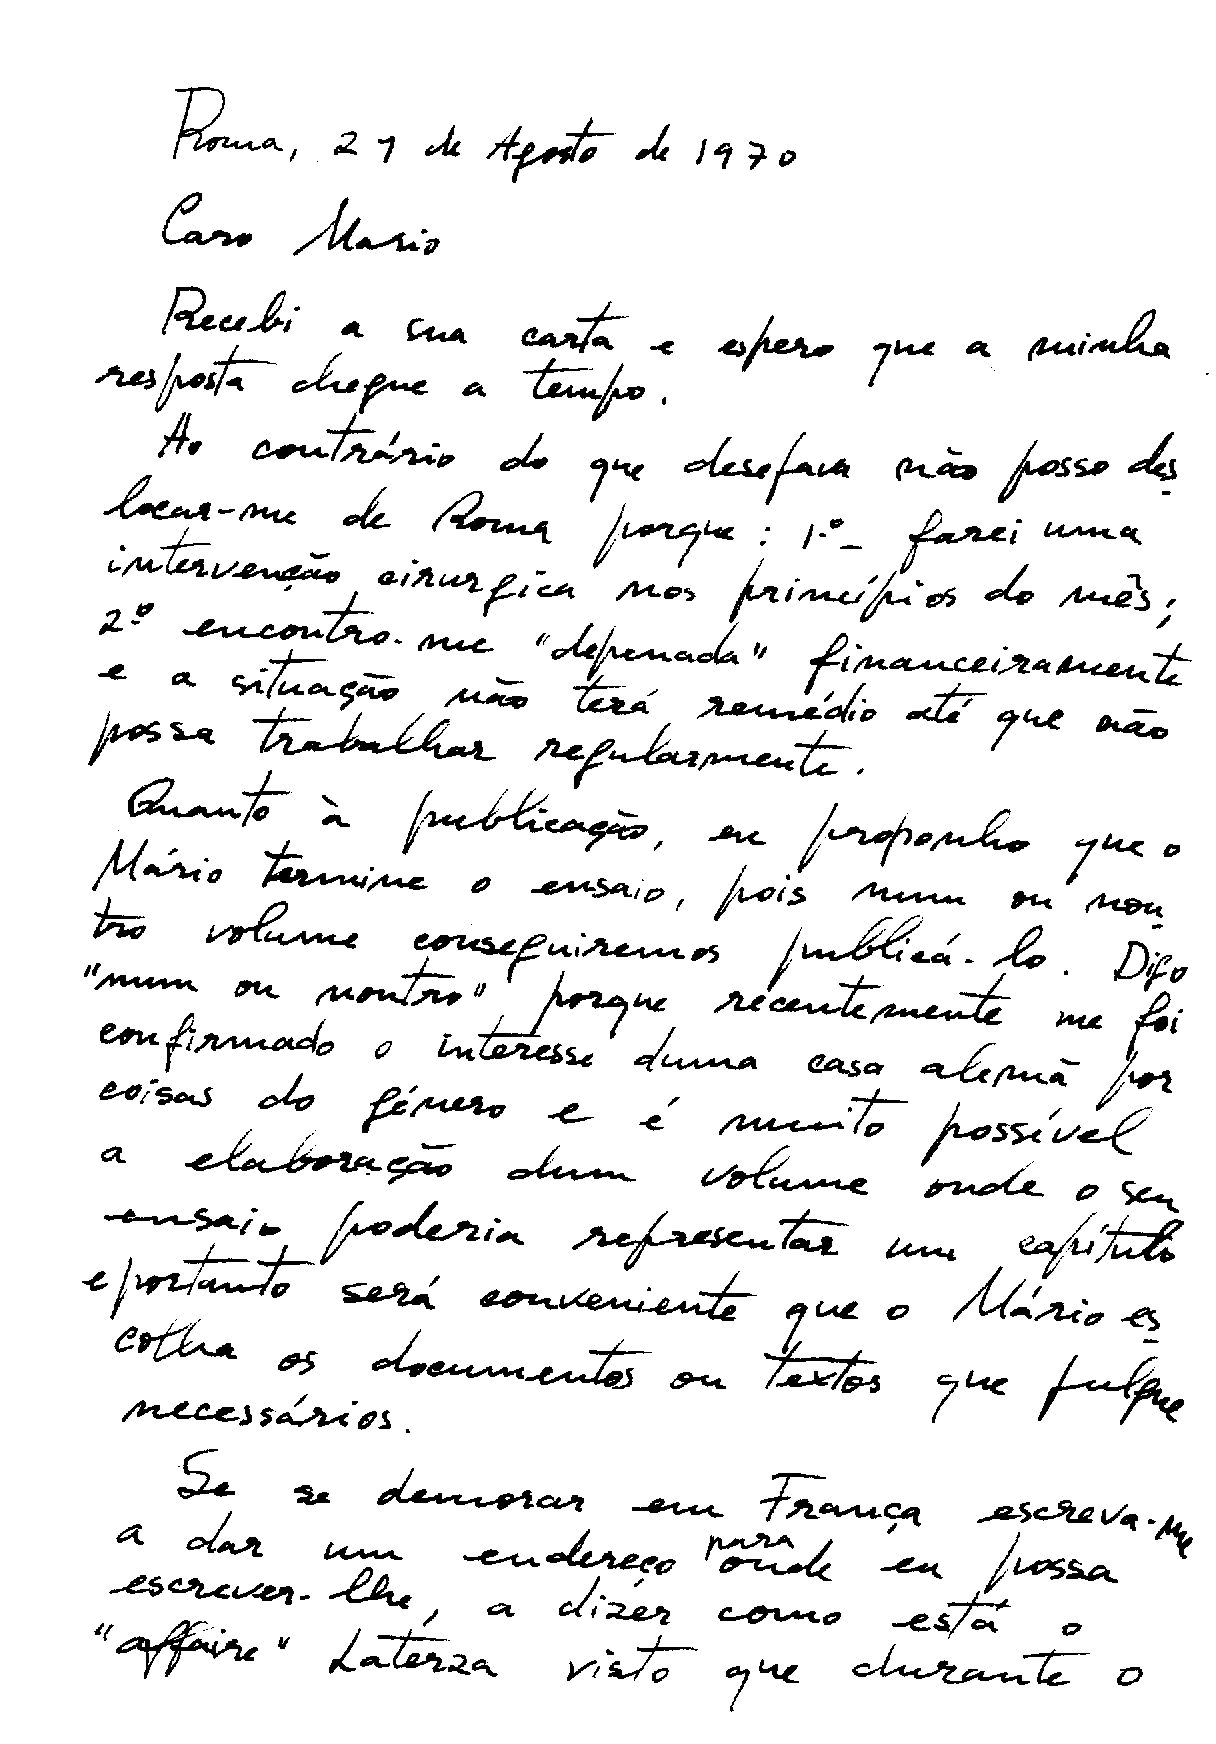 Roma, 27 de Agosto de 1970
Caro Mario
Recebi a sua carta e espero que a minha
resposta chegue a tempo.
Ao contrário do que desejava não posso des
locar-me de Roma porque: 1.º - farei uma
intervenção cirurgica nos princípios do mês;
2º encontro-me "depenada" financeiramente
e a situação não terá remédio até que não
possa trabalhar regularmente.
Quanto à publicação, eu proponho que o
Mário termine o ensaio, pois num ou nou
tro volume conseguiremos publicá-lo. Digo
"num ou noutro" porque recentemente me foi
confirmado o interesse duma casa alemã por
coisas do género e é muito possível
a elaboração dum volume onde o seu
ensaio poderia representar um capítulo
e portanto será conveniente que o Mário es
colha os documentos ou textos que julgue
necessários.
Se se demorar em França escreva-me
a dar um endereço para onde eu possa
escrever-lhe, a dizer como está o
"affaire" Laterza visto que durante o